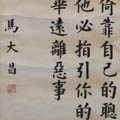 倚靠自己的聰
他必指引你的
華遠離惡事
馬大昌